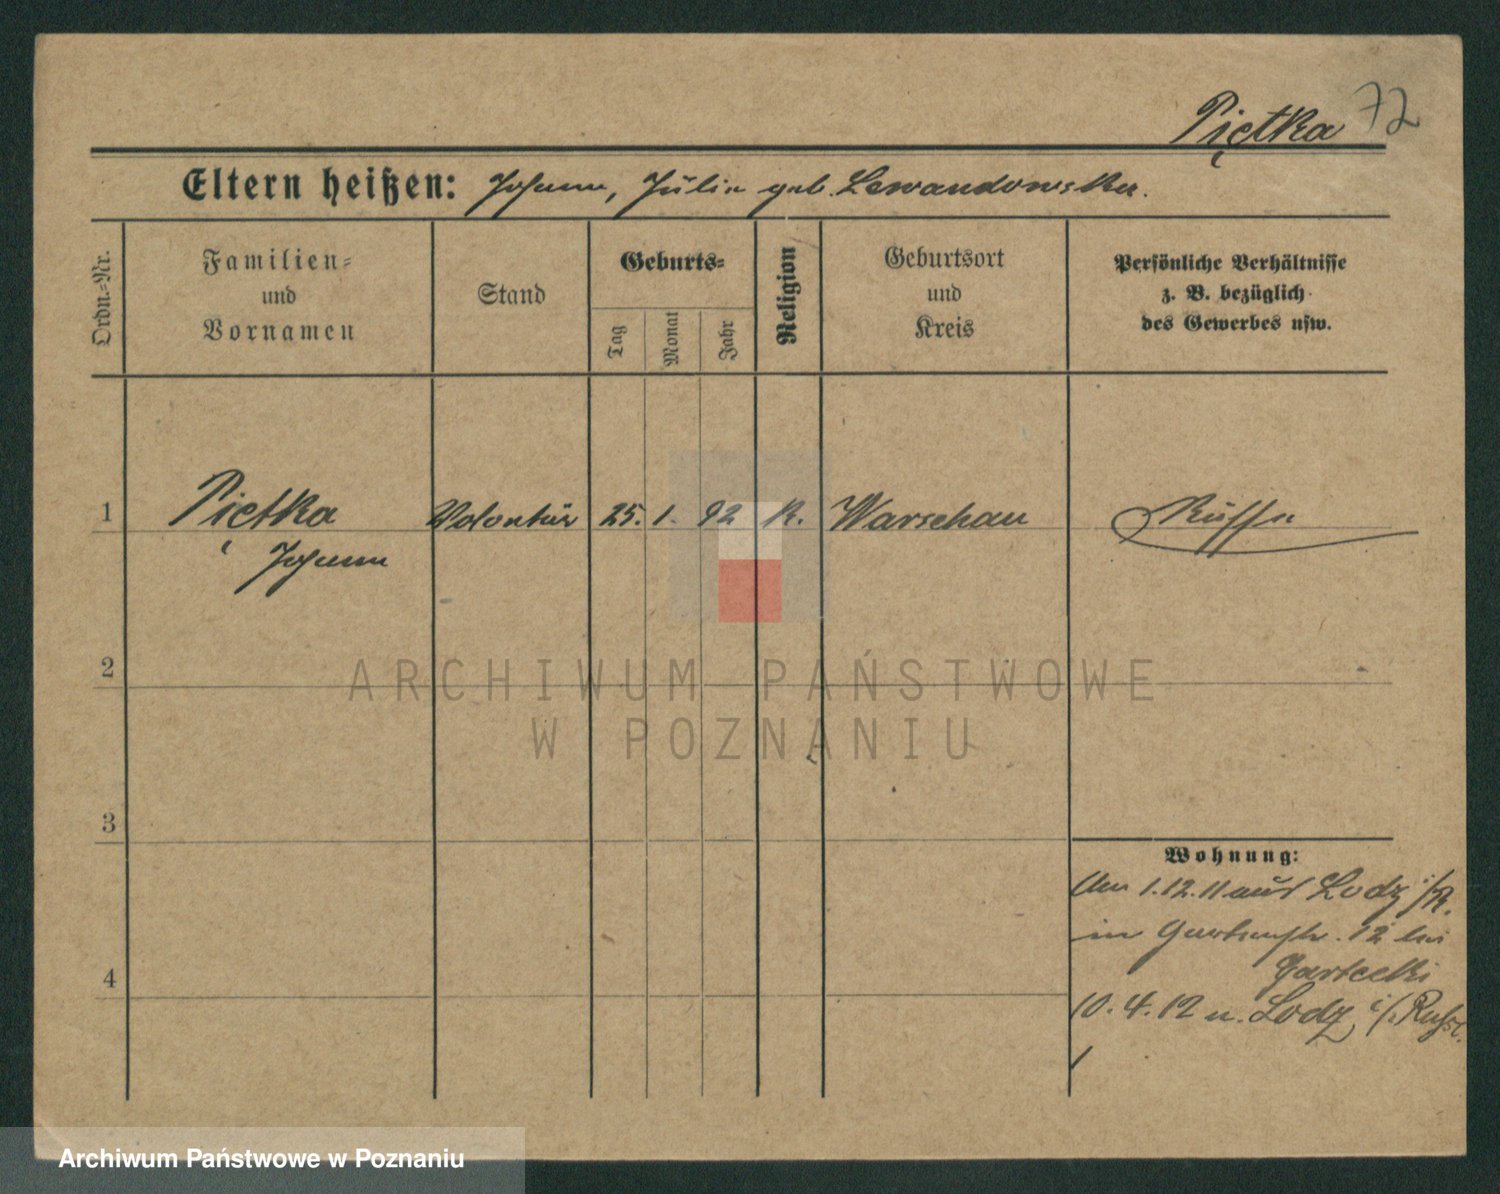 Piętka 72
Eltern heißen: Johann, Julia geb. Lewandowska.
Ordn.-Nr.
Familien-
und
Vornamen
Stand
Geburts-
Tag
Monat
Jahr
Religion
Geburtsort
und
Kreis
Persönliche Verhältnisse
z. B. bezüglich
des Gewerbes usw.
1 Piętka Volontär 25. 1. 92 K. Warschau Russe
Johann
2
ARCHIWUM PAŃSTWOWE
W POZNANIU
3
Wohnung:
Am 1.12.11 aus Lodz i/R.
in Gartenstr. 12 bei
4
10.4.12 n. Lodz i/. Russl.
Archiwum Państwowe w Poznaniu